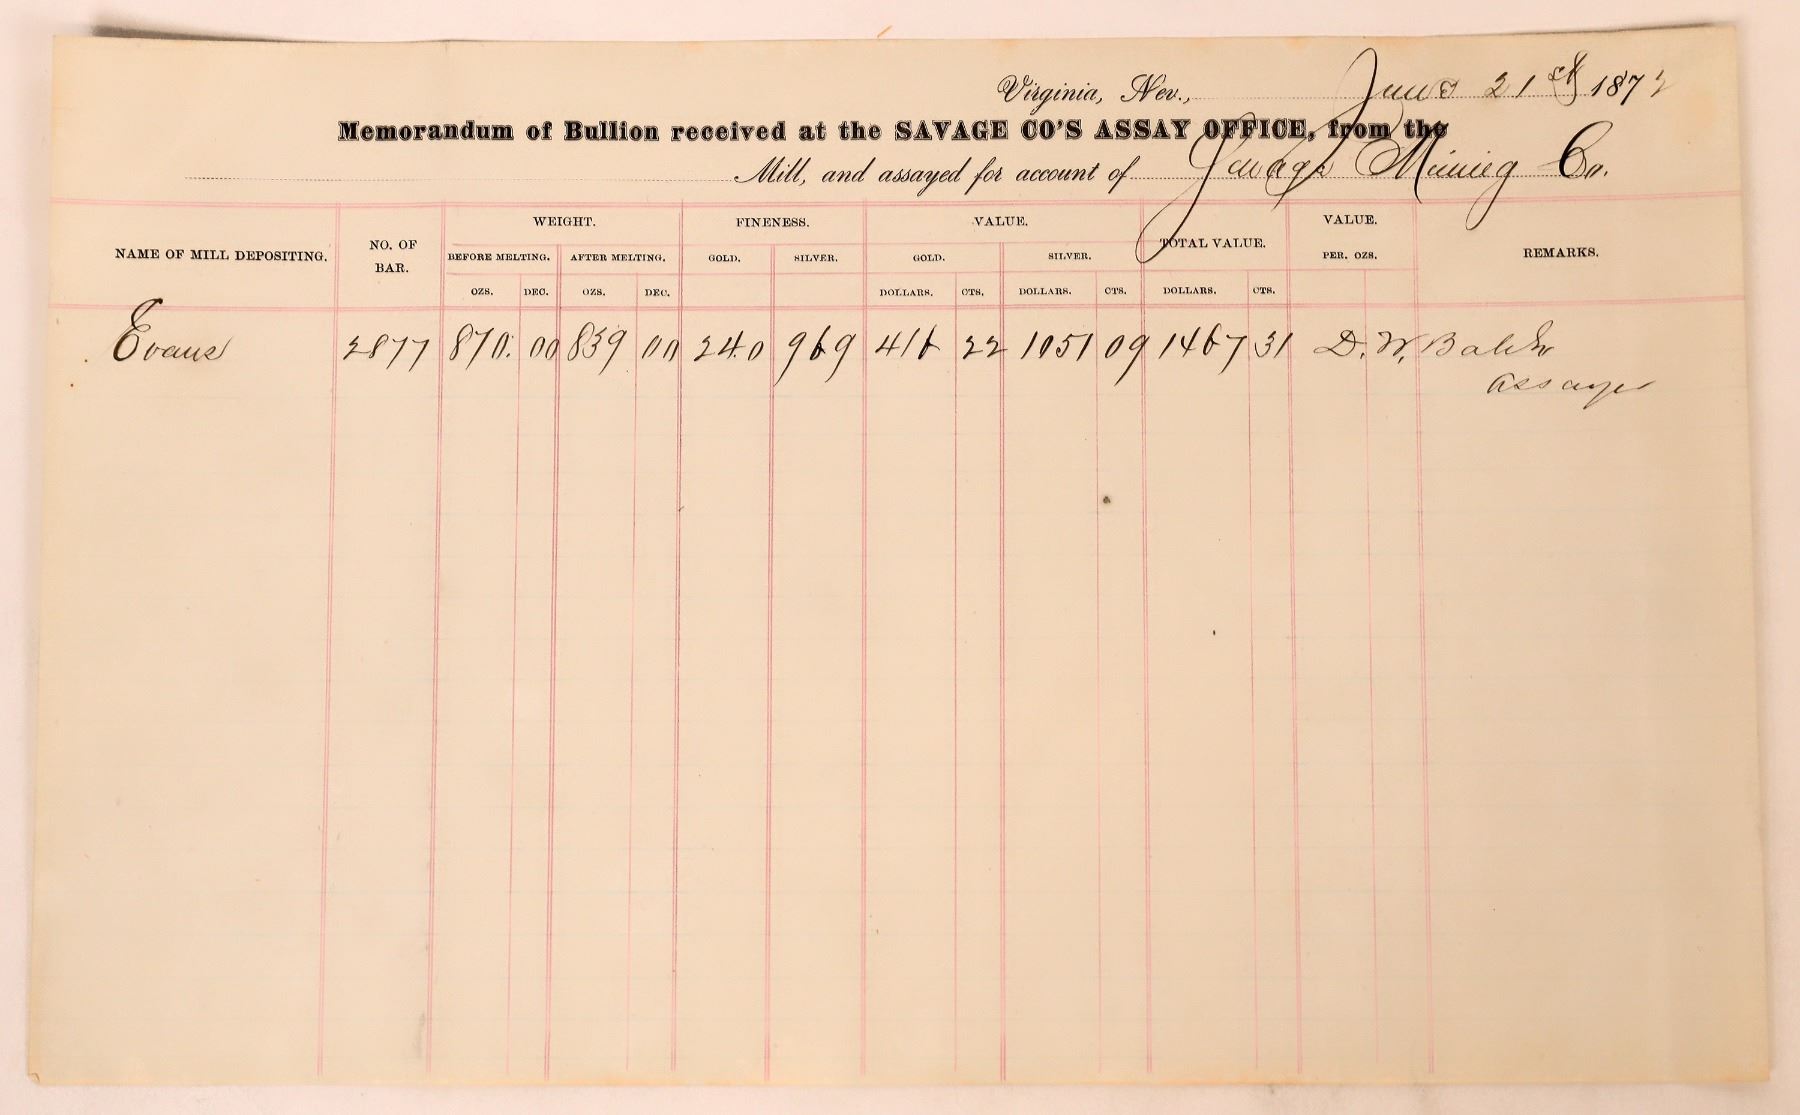 Virginia, Nev., June 21st 1872
Memorandum of Bullion received at the SAVAGE CO'S ASSAY OFFICE, from the
Mill, and assayed for account of Savage Mining Co.
NAME OF MILL DEPOSITING. NO. OF BAR. WEIGHT. FINENESS. VALUE. TOTAL VALUE. VALUE. PER. OZS. REMARKS.
BEFORE MELTING. AFTER MELTING. GOLD. SILVER. GOLD. SILVER.
OZS. DEC. OZS. DEC. DOLLARS. CTS. DOLLARS. CTS. DOLLARS. CTS.
Evans 2877 870. 00 839 00 240 969 416 22 1051 09 1467 31 D. W.
Assayer